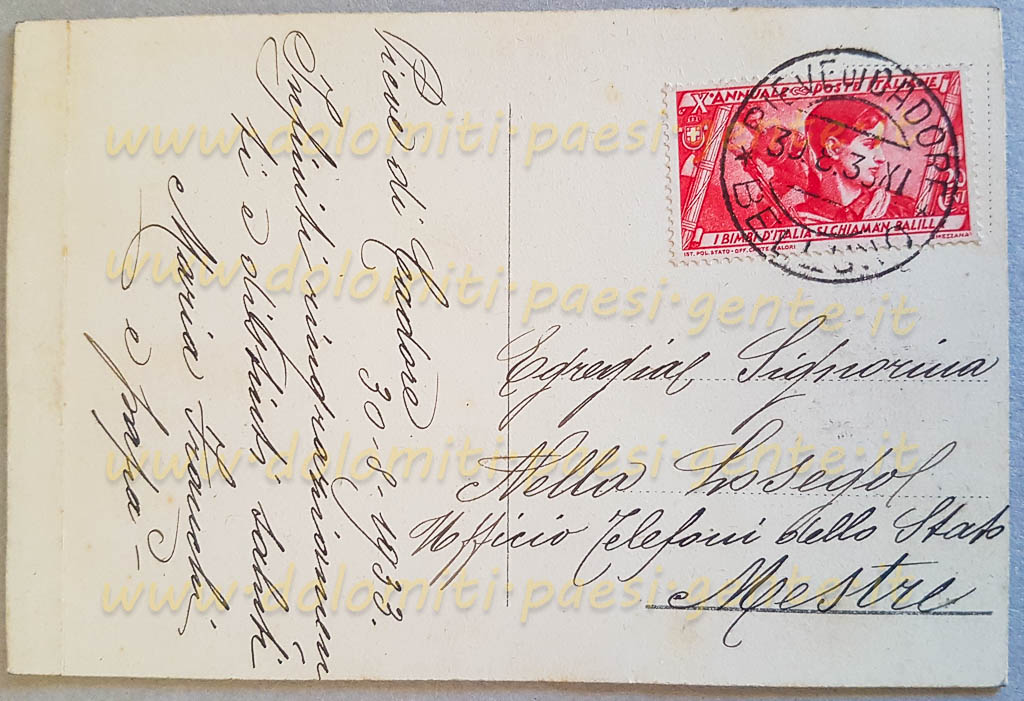 Pieve di Cadore
30-8-1933.
Infiniti ringraziamenti
ti e distinti saluti
Maria
e papà -
X° ANNUALE POSTE ITALIANE
I BIMBI D'ITALIA SI CHIAMAN BALILLA
IST. POL. STATO - OFF. CARTE VALORI MEZZANA
PIEVE DI CADORE
30.8.33 XI
* BELLUNO *
Egregia Signorina
Nella
Ufficio Telefoni dello Stato
Mestre
www.dolomiti-paesi-gente.it
www.dolomiti-paesi-gente.it
www.dolomiti-paesi-gente.it
www.dolomiti-paesi-gente.it